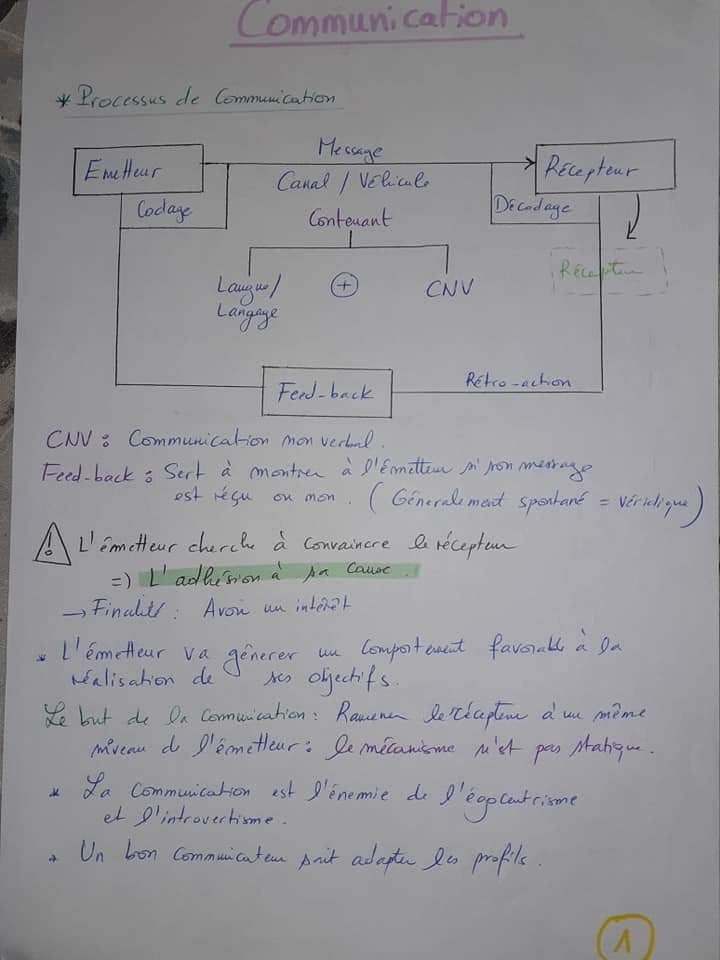 Communication
* Processus de Communication
Emetteur
Message
Récepteur
Canal / Véhicule
Codage
Décodage
Contenant
Récepteur
Langue/
Langage
+
CNV
Feed-back
Rétro-action
CNV : Communication non verbal.
Feed-back : Sert à montrer à l'émetteur si son message
est réçu ou non. (Génerалement spontané = véridique)
⚠ L'émetteur cherche à convaincre le récepteur
=) L'adhésion à sa cause.
→ Finalité : Avoir un intérêt
* L'émetteur va génerer un comportement favorable à la
réalisation de ses objectifs.
Le but de la communication : Ramener le récepteur à un même
niveau de l'émetteur : le mécanisme n'est pas statique.
* La communication est l'énemie de l'égocentrisme
et l'introvertisme.
* Un bon communicateur sait adapter les profils.
1